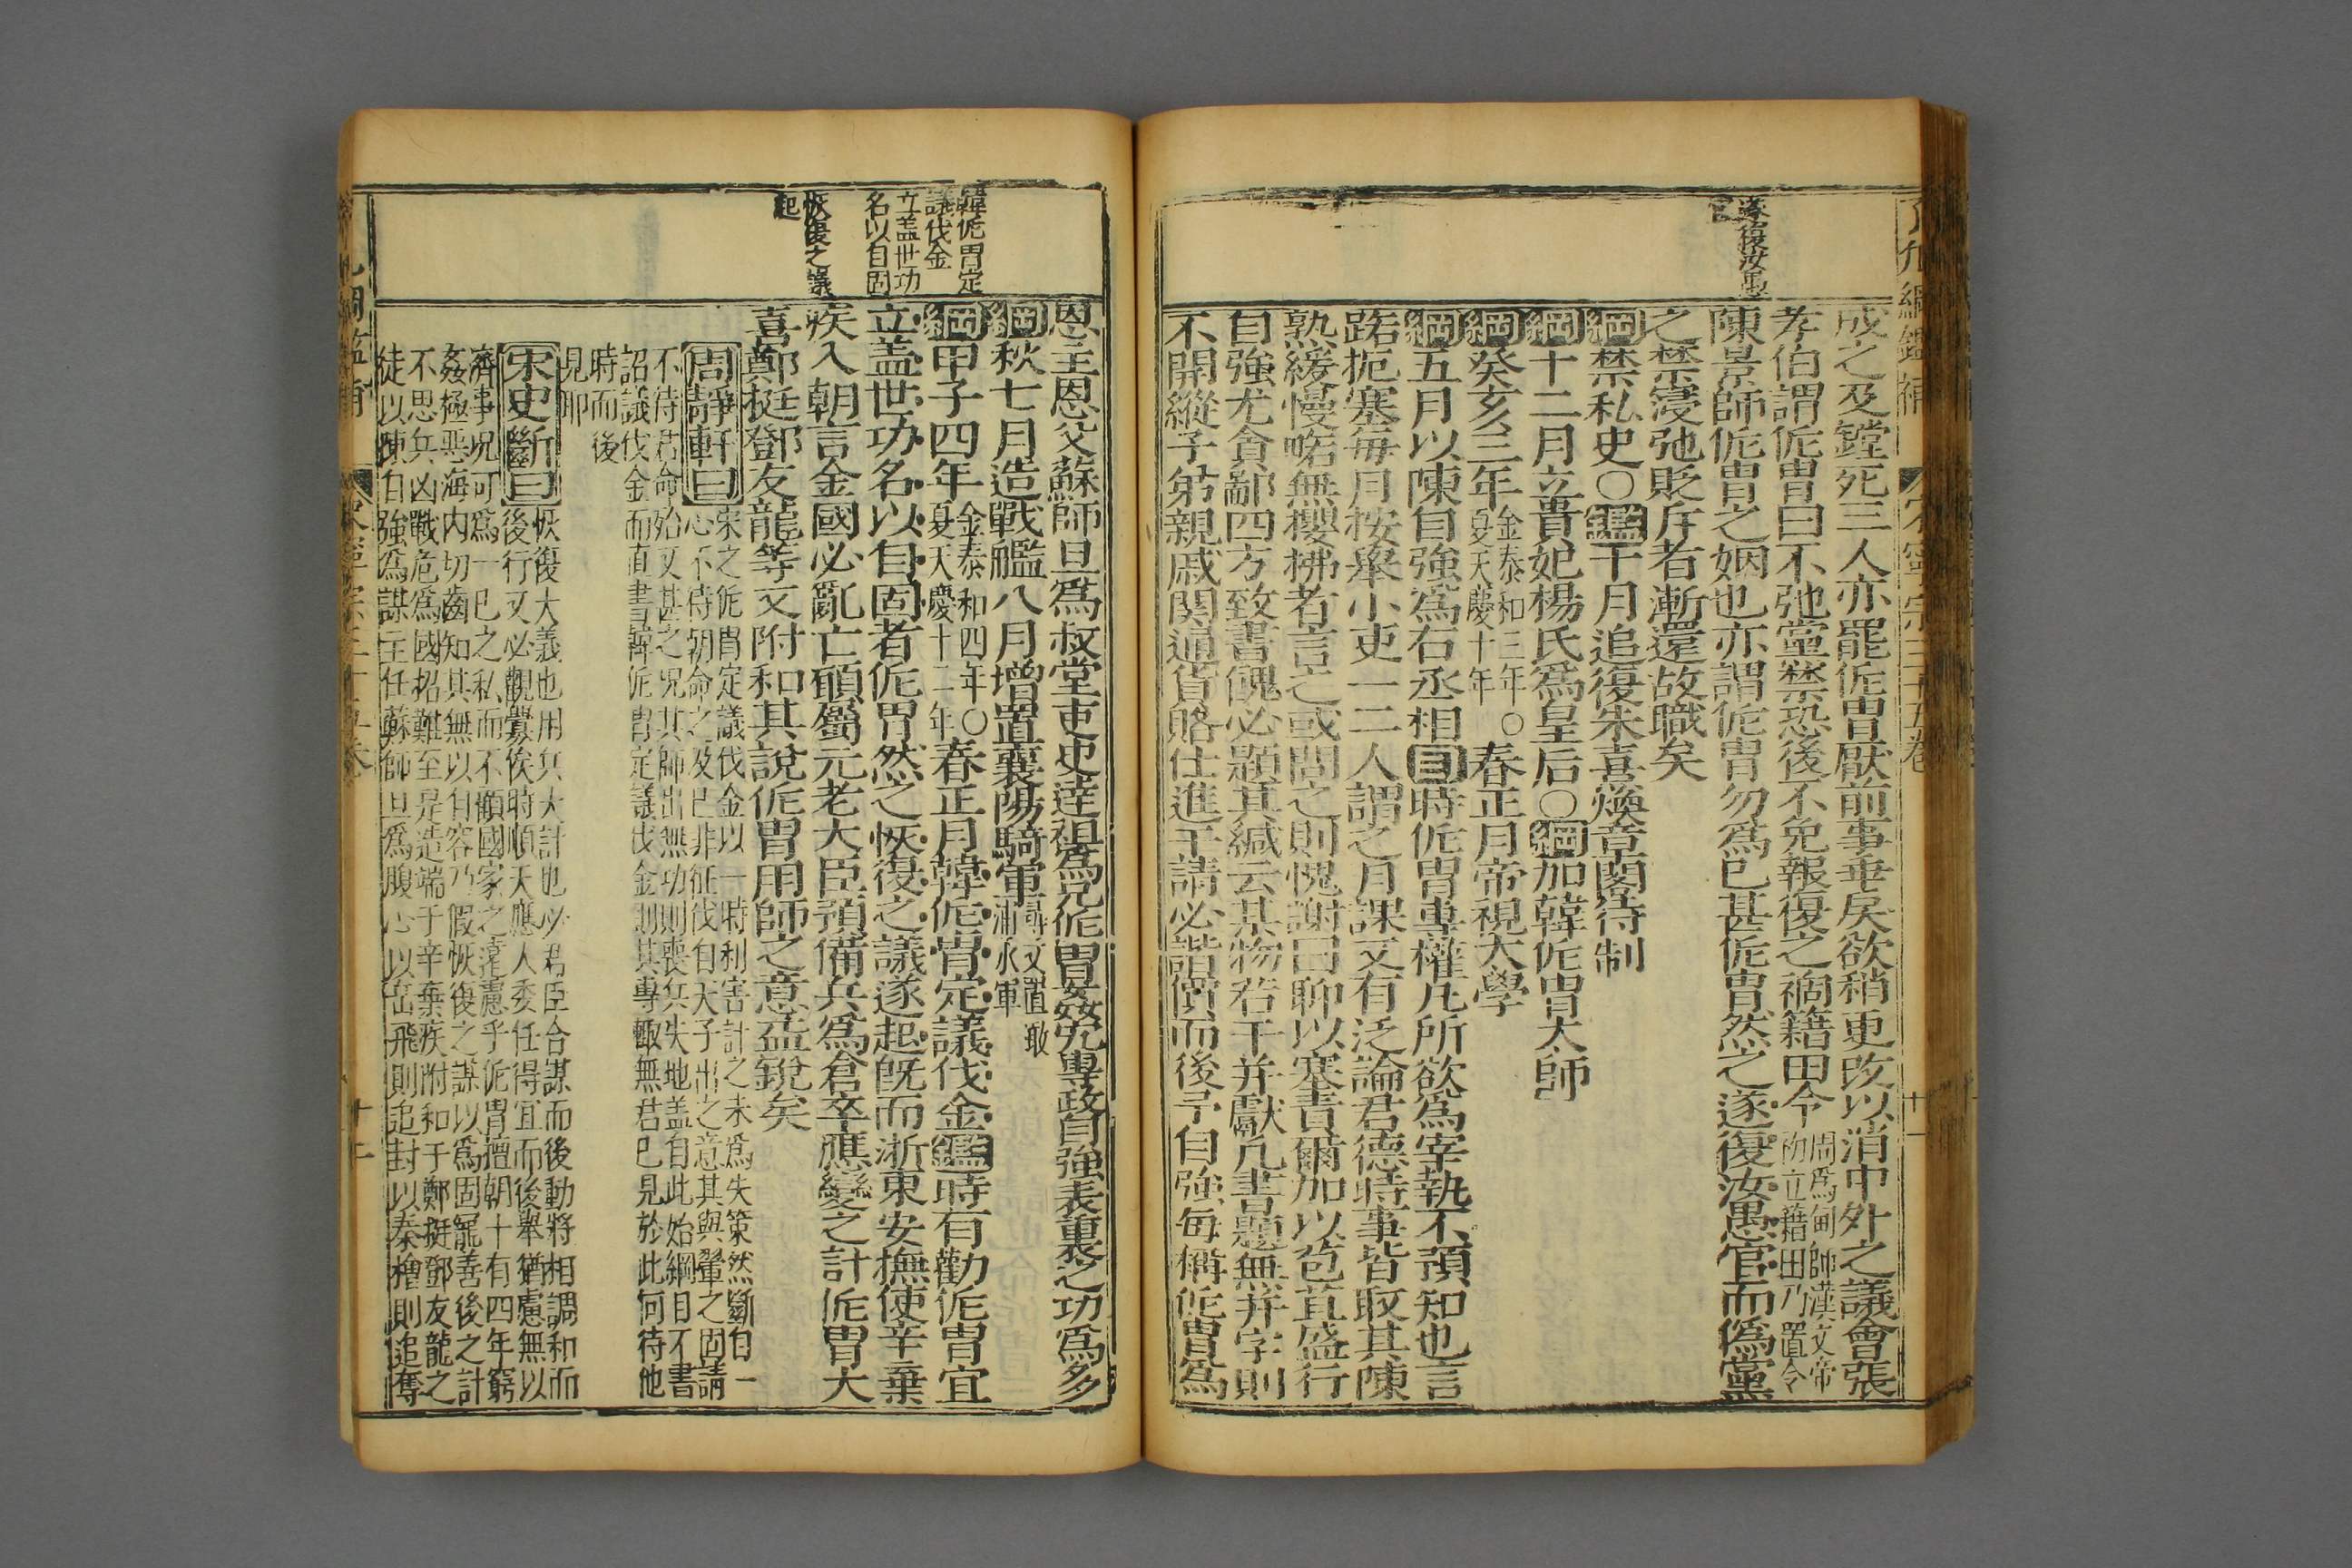 遂復汝愚
官
成之及鏜死三人亦罷侂冑厭前事乖戾欲稍更改以消中外之議會張
孝伯謂侂冑曰不弛黨禁恐後不免報復之禍籍田令周爲甸師漢文帝
初立籍田乃置令
陳景師侂冑之姻也亦謂侂冑勿爲已甚侂冑然之遂復汝愚官而僞黨
之禁寖弛貶斥者漸還故職矣
綱禁私史○鑑十月追復朱喜煥章閣待制
綱十二月立貴妃楊氏爲皇后○綱加韓侂冑太師
綱癸亥三年金泰和三年○
夏天慶十年春正月帝視大學
綱五月以陳自強爲右丞相目時侂冑專權凡所欲爲宰執不預知也言
路扼塞每月按舉小吏一二人謂之月課又有泛論君德時事皆取其陳
熟緩慢略無攖拂者言之或問之則愧謝曰聊以塞責爾加以苞苴盛行
自強尤貪鄙四方致書餽必題其緘云某物若干并獻凡書題無并字則
不開縱子弟親戚関通貨賂仕進干請必諧價而後予自強每稱侂冑爲
韓侂冑定
議伐金
立盖世功
名以自固
恢復之議
起
恩主恩父蘇師旦爲叔堂吏史達祖爲兄侂冑姦宄專政自強表裏之功爲多
綱秋七月造戰艦八月增置襄陽騎軍尋又置澉
浦水軍
綱甲子四年金泰和四年○
夏天慶十一年春正月韓侂冑定議伐金鑑時有勸侂冑宜
立盖世功名以自固者侂冑然之恢復之議遂起既而浙東安撫使辛棄
疾入朝言金國必亂亡願屬元老大臣預備兵爲倉卒應變之計侂冑大
喜鄭挺鄧友龍等又附和其說侂冑用師之意益銳矣
周靜軒曰宋之侂冑定議伐金以一時利害計之未爲失策然斷自一
心不待朝命之及已非征伐自天子出之意其與翬之固請
不待君命殆又甚之况其師出無功則喪兵失地盖自此始綱目不書
詔議伐金而直書韓侂冑定議伐金則其專輒無君已見於此何待他
時而後
見耶
宋史斷曰恢復大義也用兵大計也必君臣合謀而後動將相調和而
後行又必觀釁俟時順天應人委任得宜而後舉猶慮無以
濟事况可爲一已之私而不顧國家之遠慮乎侂冑擅朝十有四年窮
姦極惡海内切齒知其無以自容乃假恢復之謀以爲固寵善後之計
不思兵凶戰危爲國招難至是造端于辛棄疾附和于鄭挺鄧友龍之
徒以陳自強爲謀主任蘇師旦爲腹心以岳飛則追封以秦檜則追奪